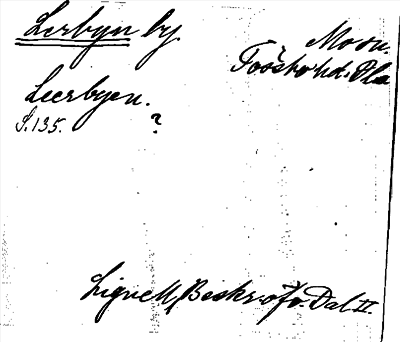 Lerbyn by
Mo sn.
Tössbo hd. Dla
Leerbyen.
S. 135. ?
Lignell, Beskr. öfv. Dal II.